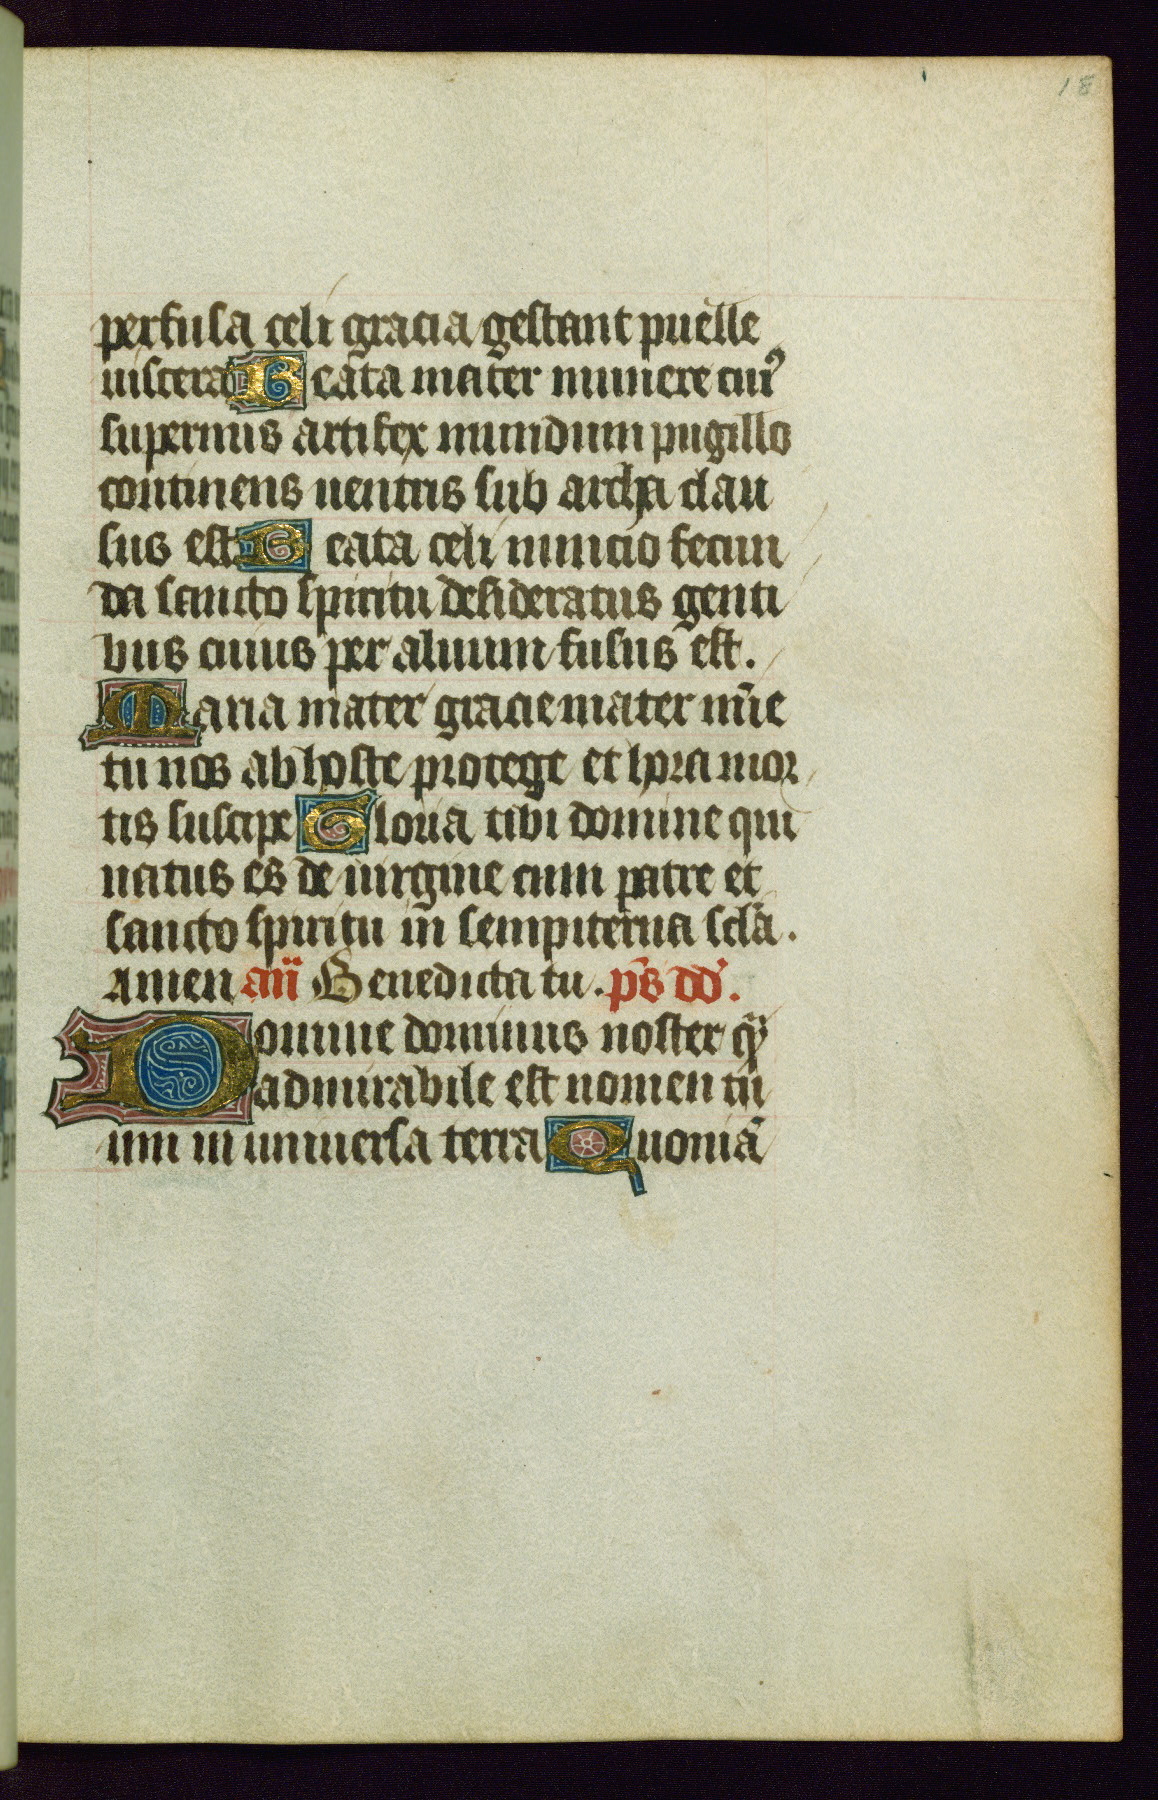 18
perfusa celi gracia gestant puelle
uiscera Beata mater munere cui᾿
supernus artifex mundum pugillo
continens uentris sub archa clau
sus est Beata celi nuncio fecun
da sancto spiritu desideratus genti
bus cuius per aluum fusus est.
Maria mater gracie mater mie
tu nos ab hoste protege et hora mor
tis suscipe Gloria tibi domine qui
natus es de uirgine cum patre et
sancto spiritu in sempiterna scła.
Amen añ Benedicta tu. ps dd.
Domine dominus noster qͣ
admirabile est nomen tu
um in uniuersa terra Quoniā